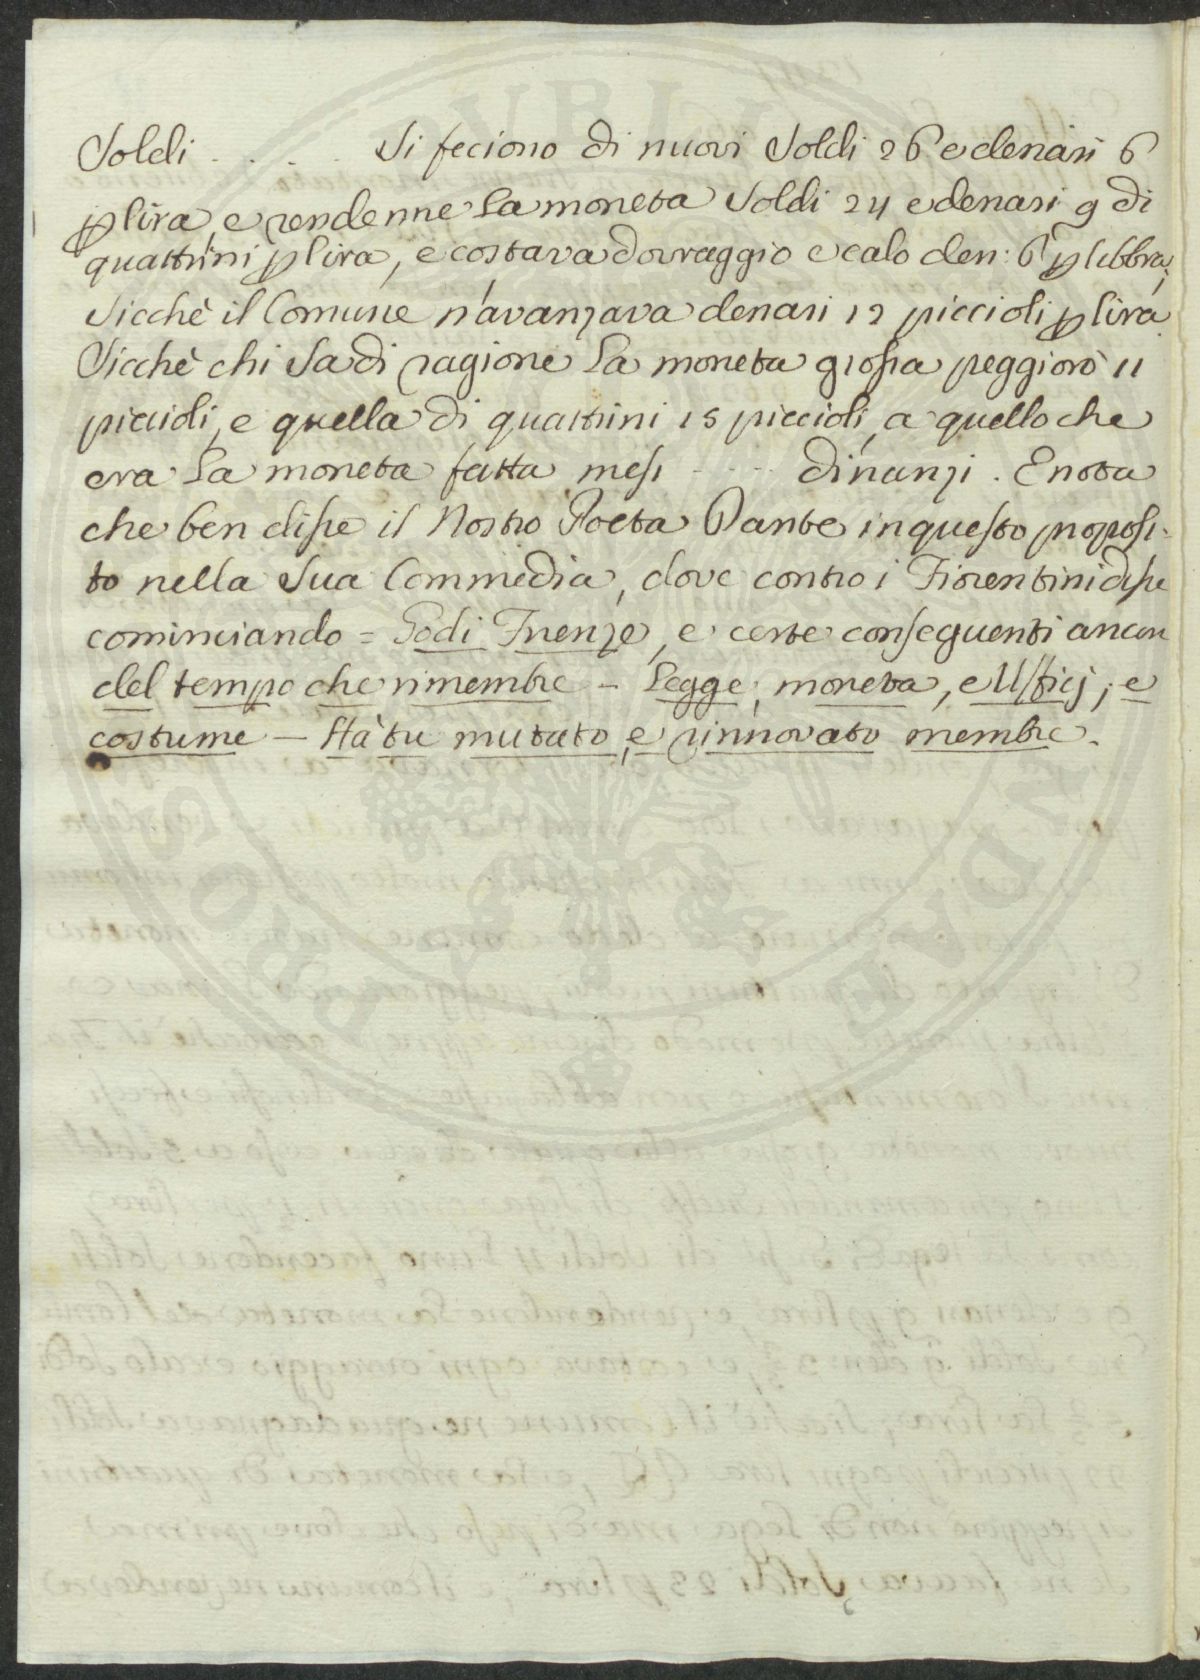 Soldi . . . . . Si feciono di nuovi Soldi 26 e denari 6
p lira, e rendenne la moneta Soldi 24 e denari 9 di
quattrini p lira, e costava d'ovraggio e calo den: 6 p libbra;
Sicchè il Comune n'avanzava denari 12 piccioli p lira
Sicchè chi sa di ragione la moneta grossa peggiorò 11
piccioli, e quella di quattrini 15 piccioli, a quello che
era la moneta fatta mesi . . . . dinanzi. E nota
che ben disse il Nostro Poeta Dante in questo proposi-
to nella Sua Commedia, dove contro i Fiorentini disse
cominciando = Godi Firenze, e certe conseguenti ancora
del tempo che rimembre – Legge, moneta, e Ufficj, e
costume – Hà tu mutato, e rinnovato membre.